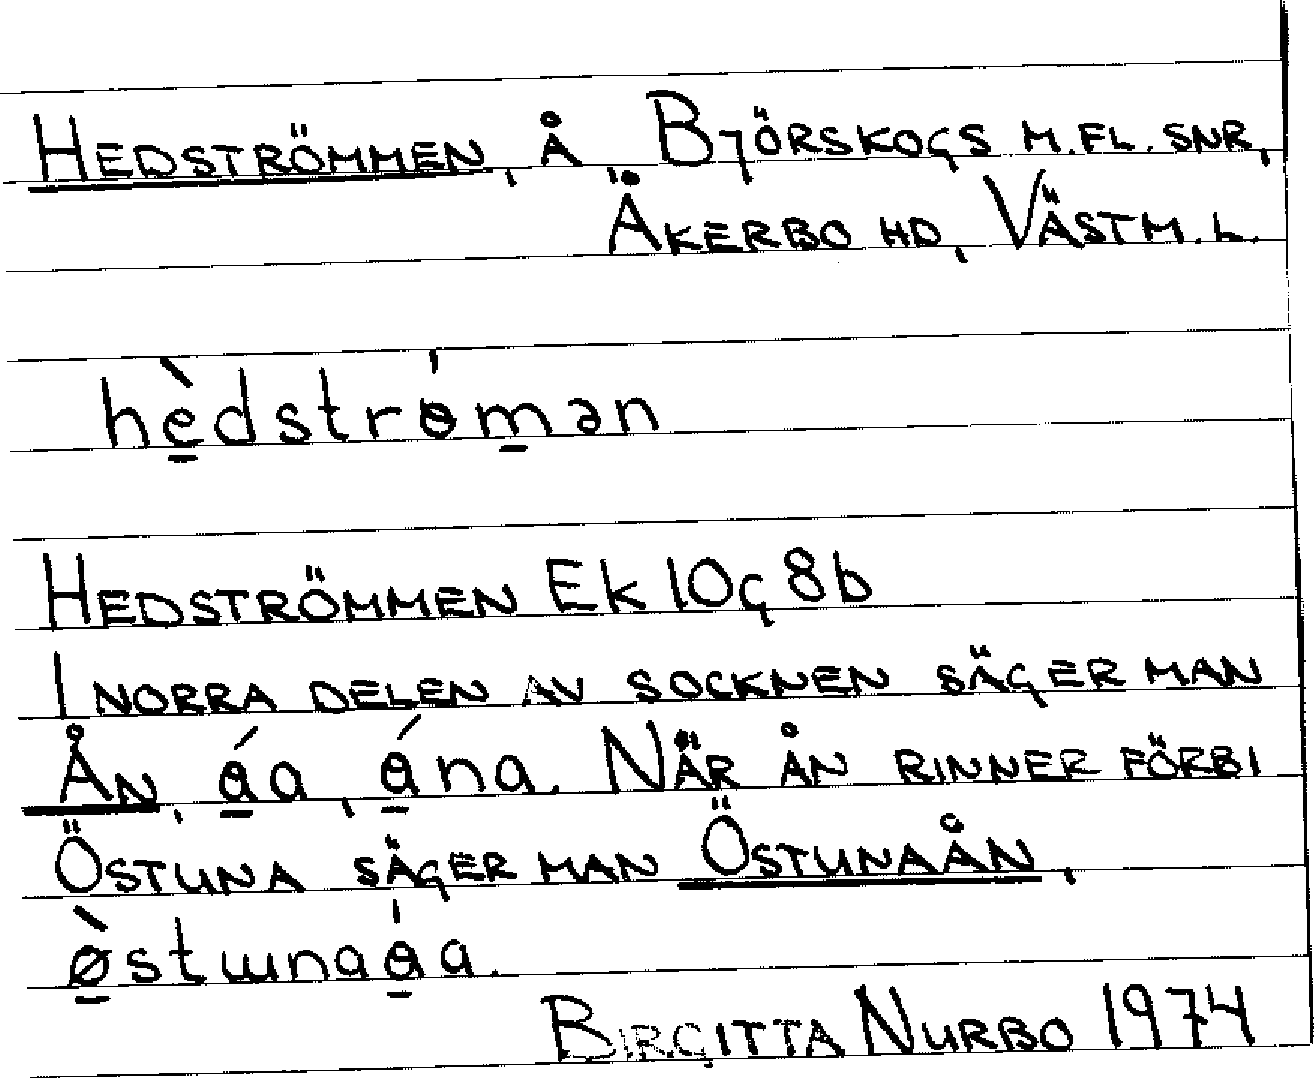 HEDSTRÖMMEN, Å, BJÖRSKOGS M.FL. SNR,
ÅKERBO HD, VÄSTM. L.
hèdstrɵ́mən
HEDSTRÖMMEN Ek 10g 8b
I NORRA DELEN AV SOCKNEN SÄGER MAN
ÅN, áa, ána. NÄR ÅN RINNER FÖRBI
ÖSTUNA SÄGER MAN ÖSTUNAÅN,
ø̀stɯnaáa.
BIRGITTA NURBO 1974